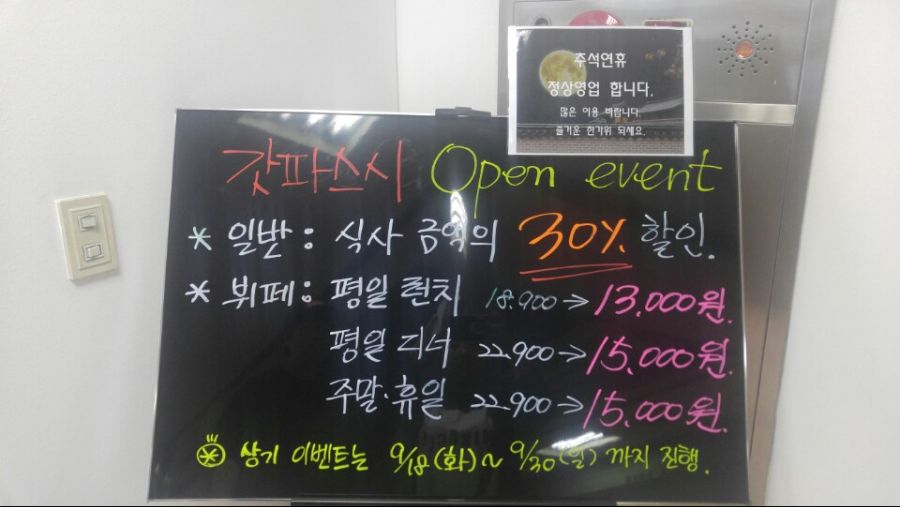 추석연휴
정상영업 합니다.
많은 이용 바랍니다.
즐거운 한가위 되세요.
갓파스시 Open event
* 일반 : 식사 금액의 30% 할인.
* 뷔페 : 평일 런치 18.900 → 13,000원.
평일 디너 22.900 → 15,000원.
주말·휴일 22.900 → 15,000원.
※ 상기 이벤트는 9/18 (화) ~ 9/30 (일) 까지 진행.